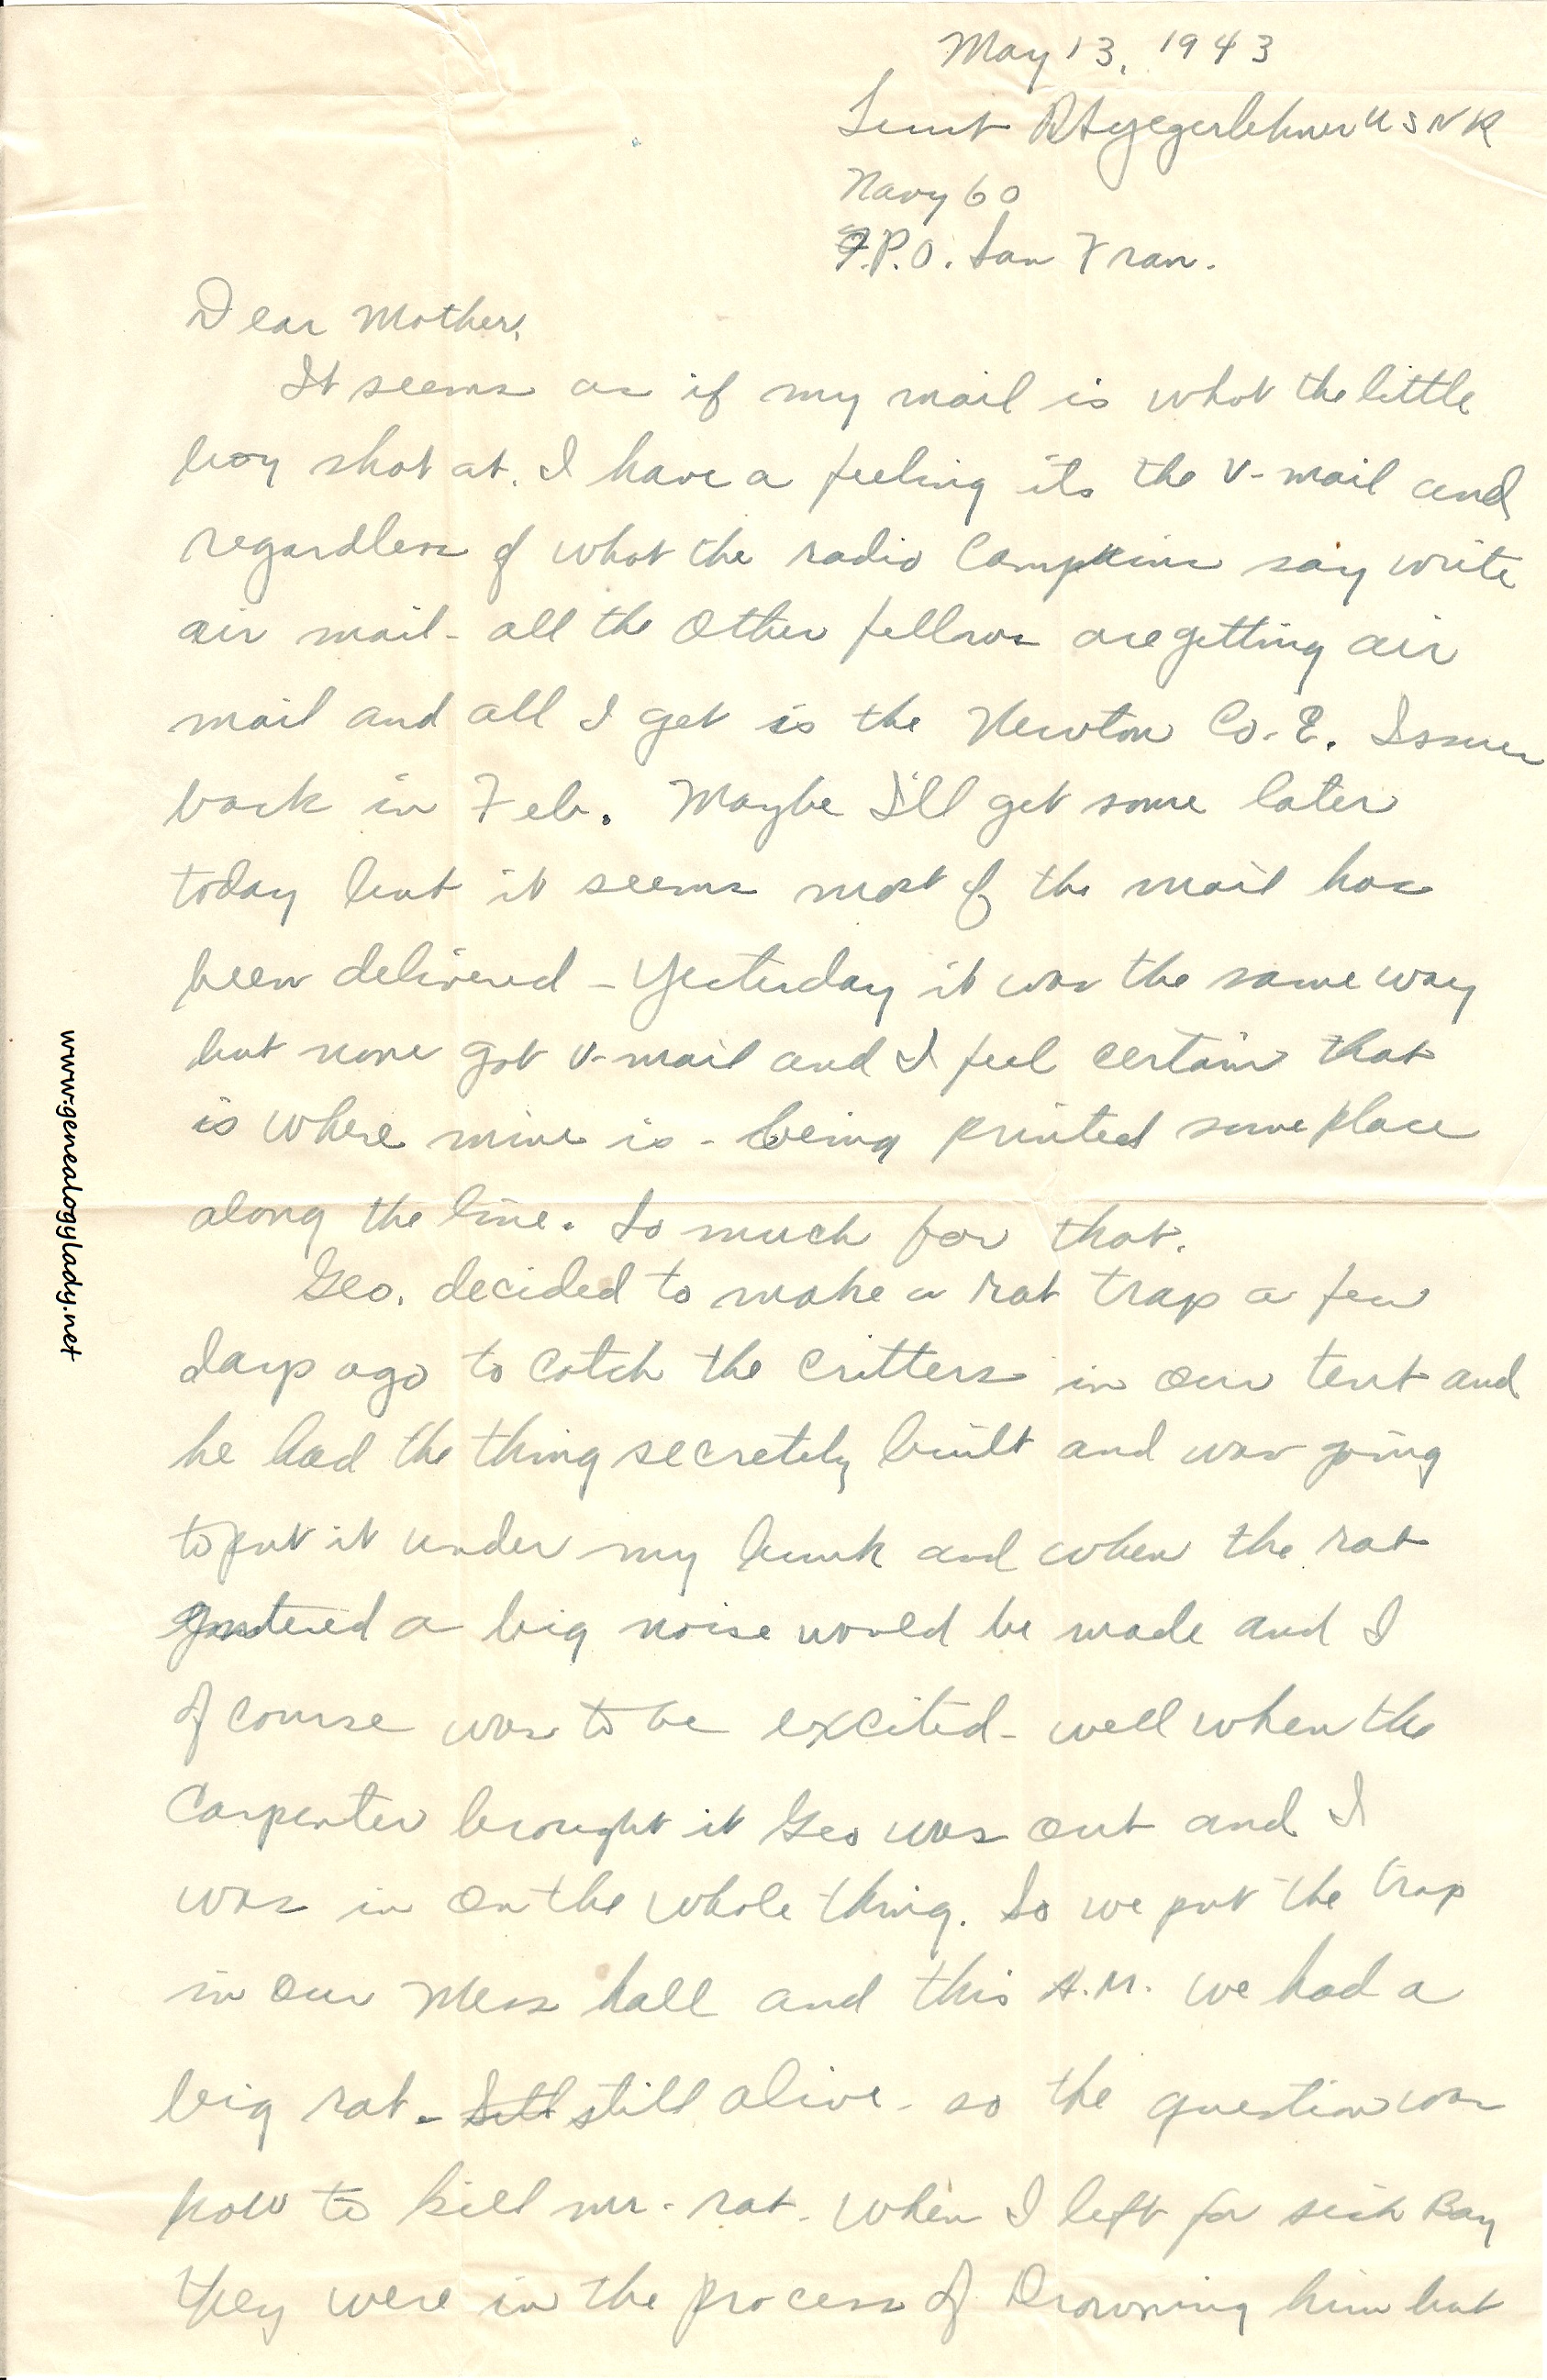 May 13, 1943
Lieut RHYegerlehner USNR
Navy 60
F.P.O. San Fran.
Dear Mother,
It seems as if my mail is what the little
boy shot at. I have a feeling its the V-mail and
regardless of what the radio say write
air mail - all the other fellows are getting air
mail and all I get is the Newton Co. E. Issues
back in Feb. Maybe I'll get some later
today but it seems most of the mail has
been delivered - Yesterday it was the same way
but none got V-mail and I feel certain that
is where mine is - being printed some place
along the line. So much for that.
Geo. decided to make a rat trap a few
days ago to catch the critters in our tent and
he had the thing secretely built and was going
to put it under my bunk and when the rat
entered a big noise would be made and I
of course was to be excited - well when the
Carpenter brought it Geo was out and I
was in on the whole thing. So we put the trap
in our Mess hall and this A.M. we had a
big rat - still alive - so the question was
how to kill mr. rat. When I left for sick Bay
they were in the process of Drowning him but
www.genealogylady.net